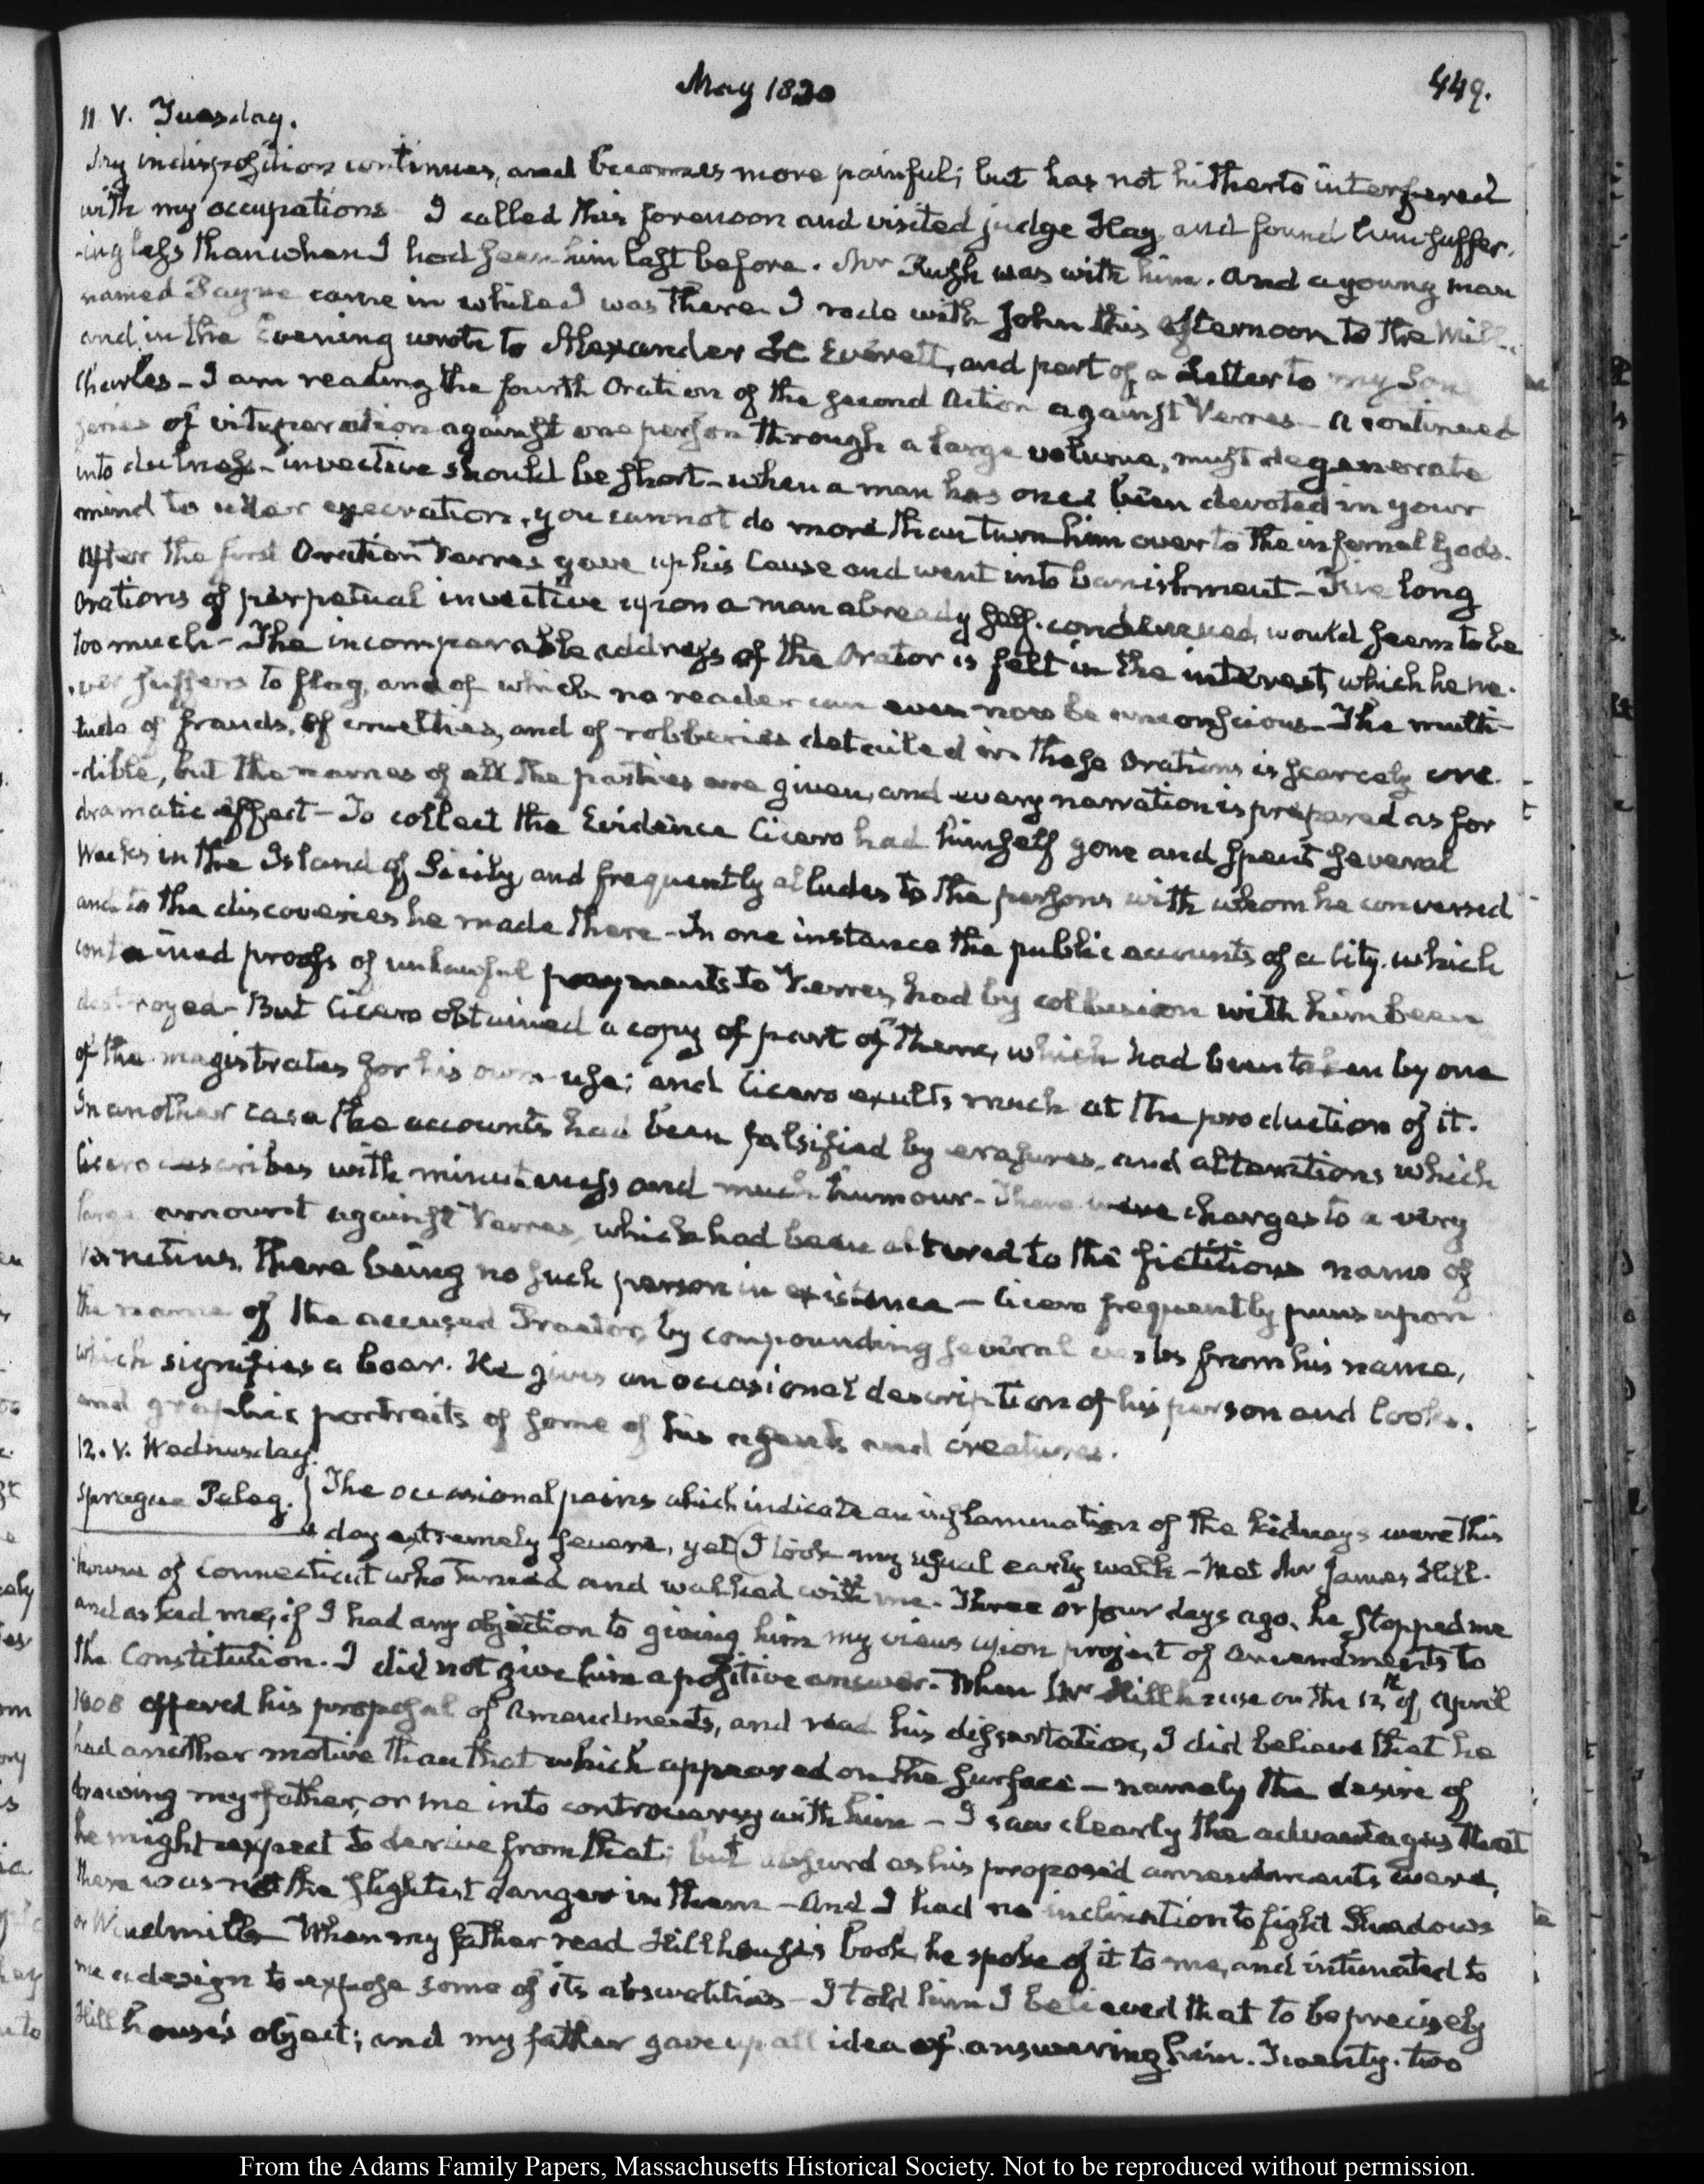 May 1830
449.
11 V. Tuesday.
My indisposition continues, and becomes more painful; but has not hitherto interfered
with my occupations I called this forenoon and visited judge Hay and found him suffer-
-ing less than when I had seen him last before. Mr Rush was with him. and a young man
named Payne came in while I was there I rode with John this afternoon to the Mill
and in the Evening wrote to Alexander H Everett, and part of a Letter to my Son
Charles - I am reading the fourth Oration of the second Action against Verres - A continued
series of vituperation against one person through a large volume, must degenerate
into dulness - invective should be short - when a man has once been devoted in your
mind to utter execration, you cannot do more than turn him over to the infernal Gods.
After the first Oration Verres gave up his Cause and went into banishment - Five long
Orations of perpetual invective upon a man already self-condemned, would seem to be
too much - The incomparable address of the Orator is felt in the interest, which he ne-
-ver suffers to flag, and of which no reader can even now be unconscious - The multi-
tude of frauds, of cruelties, and of robberies detailed in these Orations is scarcely cre-
-dible, but the names of all the parties are given, and every narration is prepared as for
dramatic effect - To collect the Evidence Cicero had himself gone and spent several
Weeks in the Island of Sicily, and frequently alludes to the persons with whom he conversed
and to the discoveries he made there - In one instance the public accounts of a City, which
contained proofs of unlawful payments to Verres, had by collusion with him been
destroyed - But Cicero obtained a copy of part of them, which had been taken by one
of the magistrates for his own use; and Cicero exults much at the production of it.
In another case the accounts had been falsified by erasures, and alterations which
Cicero describes with minuteness and much humour - There were charges to a very
large amount against Verres, which had been altered to the fictitious name of
Verrutius, there being no such person in existence - Cicero frequently puns upon
the name of the accused Praetor, by compounding several verbs from his name,
which signifies a boar. He gives an occasional description of his person and looks,
and graphic portraits of some of his agents and creatures.
12. V. Wednesday.
Sprague Peleg. } The occasional pains which indicate an inflammation of the kidneys were this
day extremely severe, yet I took my usual early walk - Met Mr James Hill-
house of Connecticut who turned and walked with me. Three or four days ago, he stopped me
and asked me, if I had any objection to giving him my views upon project of Amendments to
the Constitution. I did not give him a positive answer. When Mr Hillhouse on the 12th of April
1808 offered his proposal of Amendments, and read his dissertation, I did believe that he
had another motive than that which appeared on the surface - namely the desire of
drawing my father, or me into controversy with him - I saw clearly the advantages that
he might expect to derive from that; but absurd as his proposed amendments were,
there was not the slightest danger in them - And I had no inclination to fight Shadows
or Windmills - When my father read Hillhouse's book, he spoke of it to me, and intimated to
me a design to expose some of its absurdities - I told him I believed that to be precisely
Hillhouse's object; and my father gave up all idea of answering him. Twenty-two
From the Adams Family Papers, Massachusetts Historical Society. Not to be reproduced without permission.